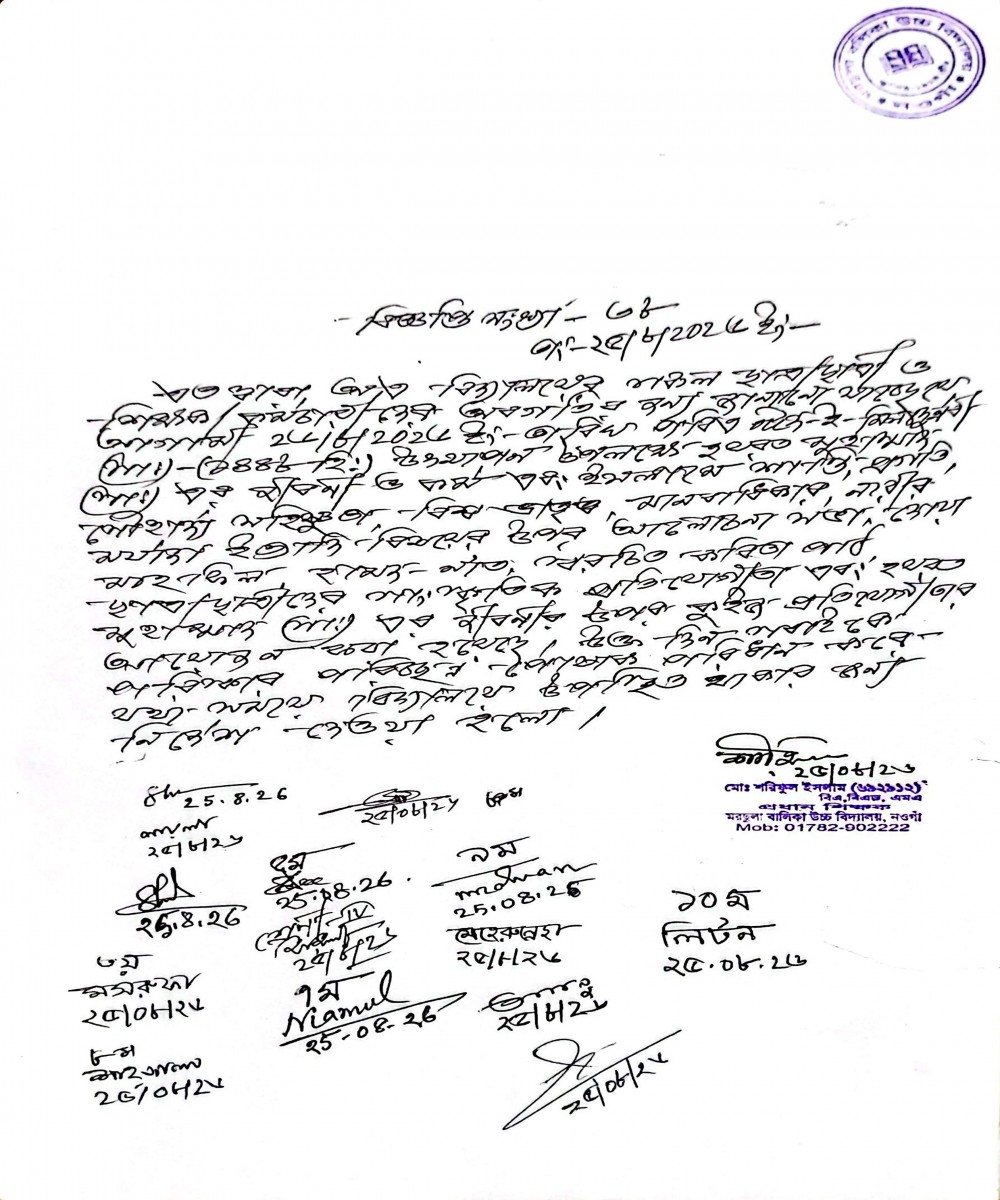 বালিকা উচ্চ বিদ্যালয়
বিজ্ঞপ্তি সংখ্যা - ৩৮
তাং-২৫/৮/২০২৬ ইং-
এতদ্বারা, অত্র বিদ্যালয়ের সকল ছাত্রছাত্রী ও
শিক্ষক/কর্মচারীদের অবগতির জন্য জানানো যাচ্ছে যে
আগামী ২৬/৮/২০২৬ ইং তারিখ পবিত্র ঈদ-ই-মিলাদুন্নবী
(সাঃ)-(১৪৪৮ হিঃ) উদযাপন উপলক্ষে হযরত মুহাম্মাদ
(সাঃ) এর জীবনী ও কর্ম এবং ইসলামে শান্তি, প্রগতি,
সৌহার্দ্য সহিষ্ণুতা, বিশ্ব ভ্রাতৃত্ব, মানবাধিকার, নারীর
মর্যাদা ইত্যাদি বিষয়ের উপর আলোচনা সভা, দোয়া
মাহফিল, হামদ-নাত, স্বরচিত কবিতা পাঠ,
ছাত্রছাত্রীদের সাংস্কৃতিক প্রতিযোগীতা এবং হযরত
মুহাম্মাদ (সাঃ) এর জীবনীর উপর কুইজ প্রতিযোগীতার
আয়োজন করা হয়েছে। উক্ত দিন সবাইকে
পরিষ্কার পরিচ্ছন্ন পোষাক পরিধান করে
যথা-সময়ে বিদ্যালয়ে উপস্থিত থাকার জন্য
নির্দেশ দেওয়া হলো।
২৫/০৮/২৬
মোঃ শরিফুল ইসলাম (৬৯২৯১২)
বিএ,বিএড, এমএ
প্রধান শিক্ষক
মরছুলা বালিকা উচ্চ বিদ্যালয়, নওগাঁ
Mob: 01782-902222
25.8.26
২৫/০৮/২৬
২৫/৮/২৬
৫ম
25.08.26
৯ম
25.08.26
25.8.26
২৫/৮/২৬
মেহেরুন্নেছা
২৫/৮/২৬
১০ম
লিটন
২৫.০৮.২৬
৬ষ্ঠ
মাসরুফা
২৫/০৮/২৬
৭ম
Niamul
25-08-26
২৫/৮/২৬
৮ম
২৫/০৮/২৬
২৫/০৮/২৬